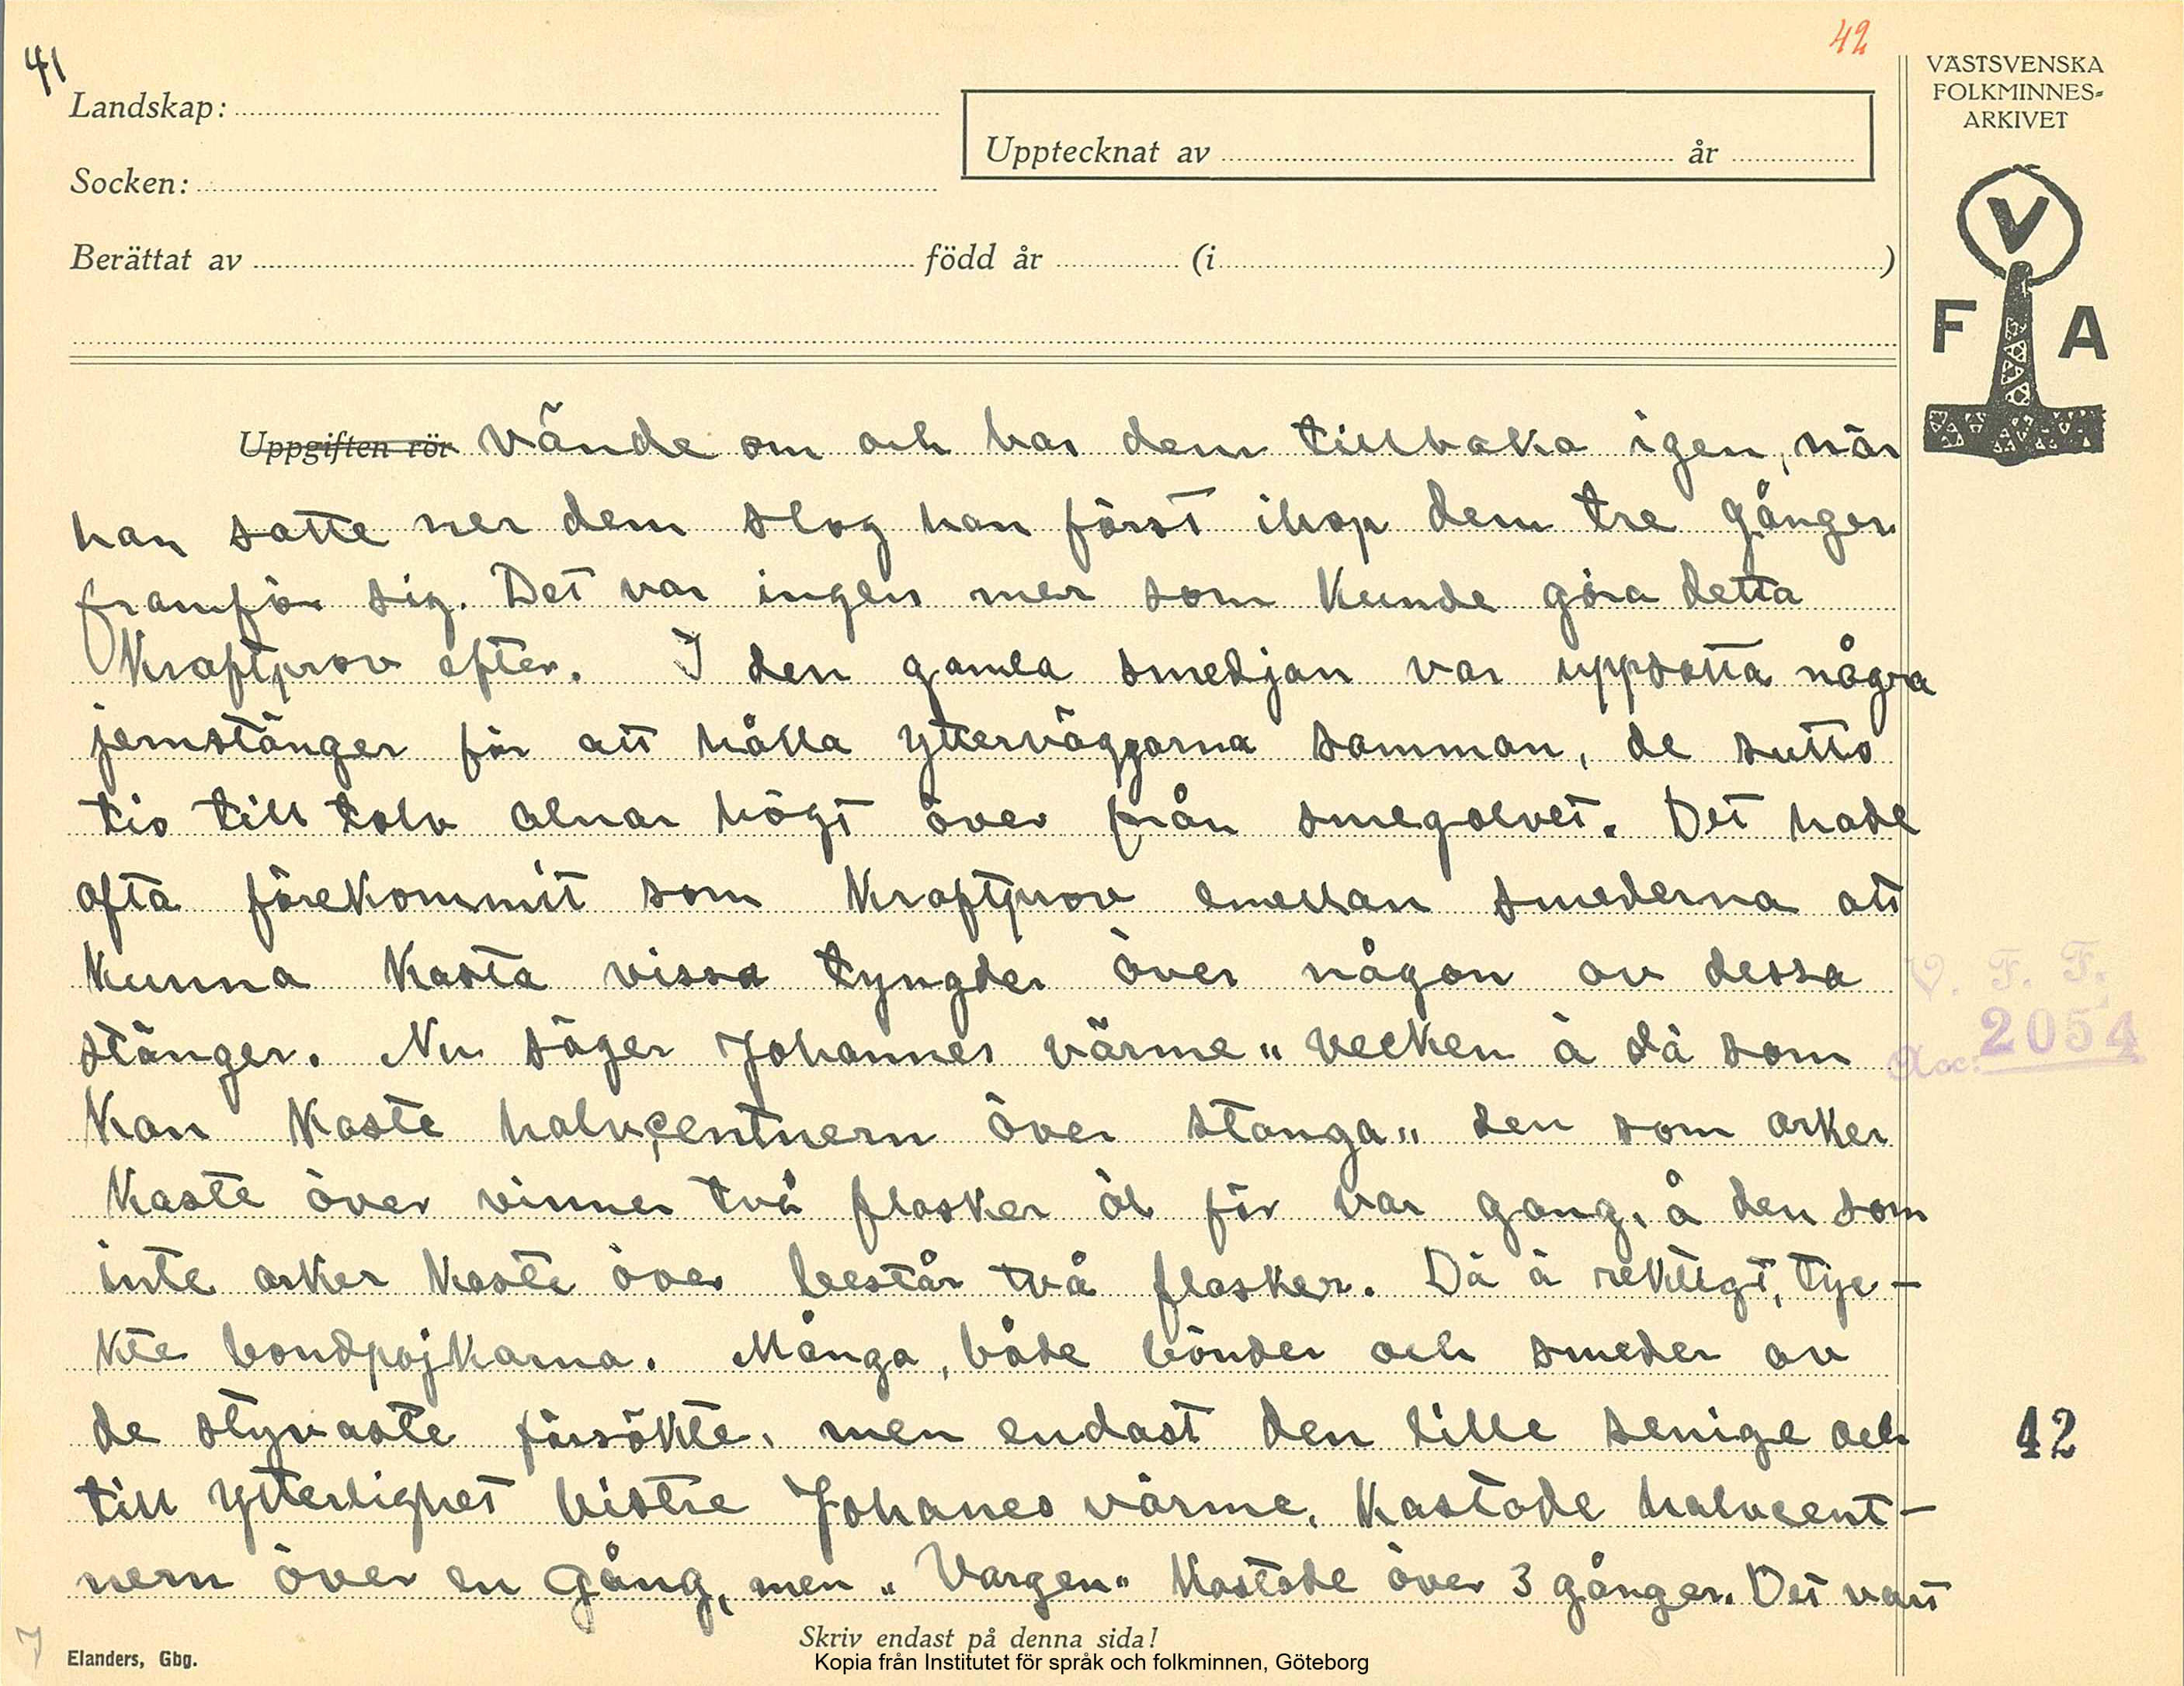 41
42
VÄSTSVENSKA
FOLKMINNES-
ARKIVET
Landskap:
Upptecknat av år
Socken:
Berättat av född år (i )
V
F A
Uppgiften rör vände om och bar dem tillbaka igen, när
han satte ner dem slog han först ihop dem tre gånger
framför sig. Det var ingen mer som kunde göra detta
kraftprov efter. I den gamla smedjan var uppsatta några
jernstänger för att hålla ytterväggarna samman, de sutto
tio till tolv alnar högt över från smegolvet. Det hade
ofta förekommit som kraftprov emellan smederna att
kunna kasta vissa tyngder över någon av dessa
stänger. Nu säger Johannes värme "vecken ä dä som
kan kaste halvcentnern över stanga" den som arker
kaste över vinner två flasker öl för var gang, å den som
inte arker kaste över består två flasker. Dä ä rektigt, tyc-
kte bondpojkarna. Många, både bönder och smeder av
de styvaste försökte, men endast den lille senige och
till ytterlighet bistre Johanes värme, kastade halvcent-
nern över en gång, men "Vargen" kastade över 3 gånger. Det vart
V. F. F.
Acc: 2054
42
7
Elanders, Gbg.
Skriv endast på denna sida!
Kopia från Institutet för språk och folkminnen, Göteborg